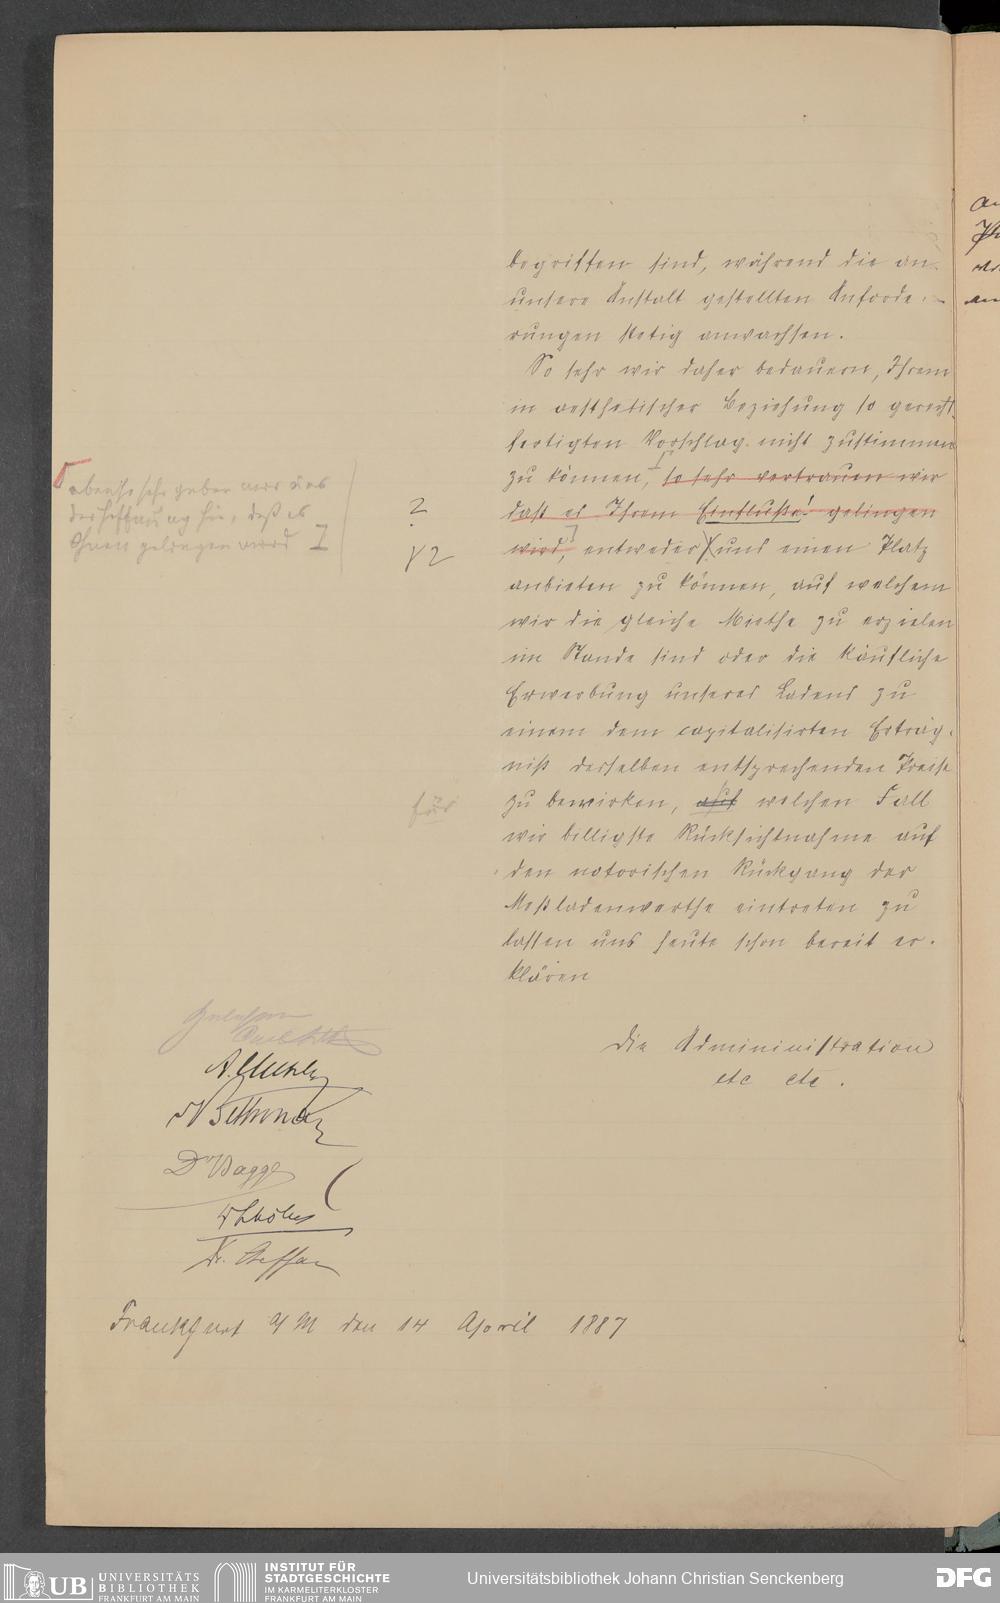 begriffen sind, während die an
unsere Anstalt gestellten Anforde-
rungen stetig anwachsen.
So sehr wir daher bedauern, Ihrem
in aesthetischer Beziehung so gerecht-
fertigten Vorschlag nicht zustimmen
zu können, so sehr vertrauen wir
daß es Ihrem Einfluße! gelingen
wird, entweder uns einen Platz
anbieten zu können, auf welchem
wir die gleiche Miethe zu erzielen
im Stande sind oder die käufliche
Erwerbung unseres Ladens zu
einem dem capitalisirten Erträg-
niß desselben entsprechenden Preise
zu bewirken, auf welchen Fall
wir billigste Rücksichtnahme auf
den notorischen Rückgang der
Meßladenwerthe eintreten zu
lassen uns heute schon bereit er-
klären
Die Admininistration
etc etc.
ebenso sehr geben wir uns
der Hoffnung hin, daß es
Ihnen gelingen wird
?
für
Dr Bagge
Dr. Steffan
Frankfurt a/M den 14 April 1887
UB UNIVERSITÄTS
BIBLIOTHEK
FRANKFURT AM MAIN
INSTITUT FÜR
STADTGESCHICHTE
IM KARMELITERKLOSTER
FRANKFURT AM MAIN
Universitätsbibliothek Johann Christian Senckenberg
DFG